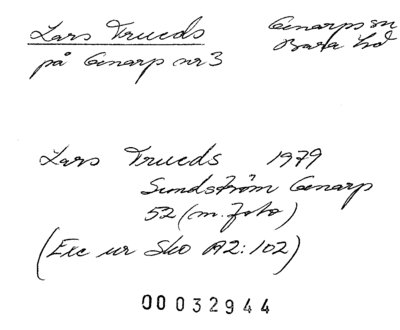 Lars Trueds
på Genarp nr 3
Genarps sn
Bara hd
Lars Trueds 1979
Sundström Genarp
52 (m. foto)
(Exc ur Sko A2:102)
00032944